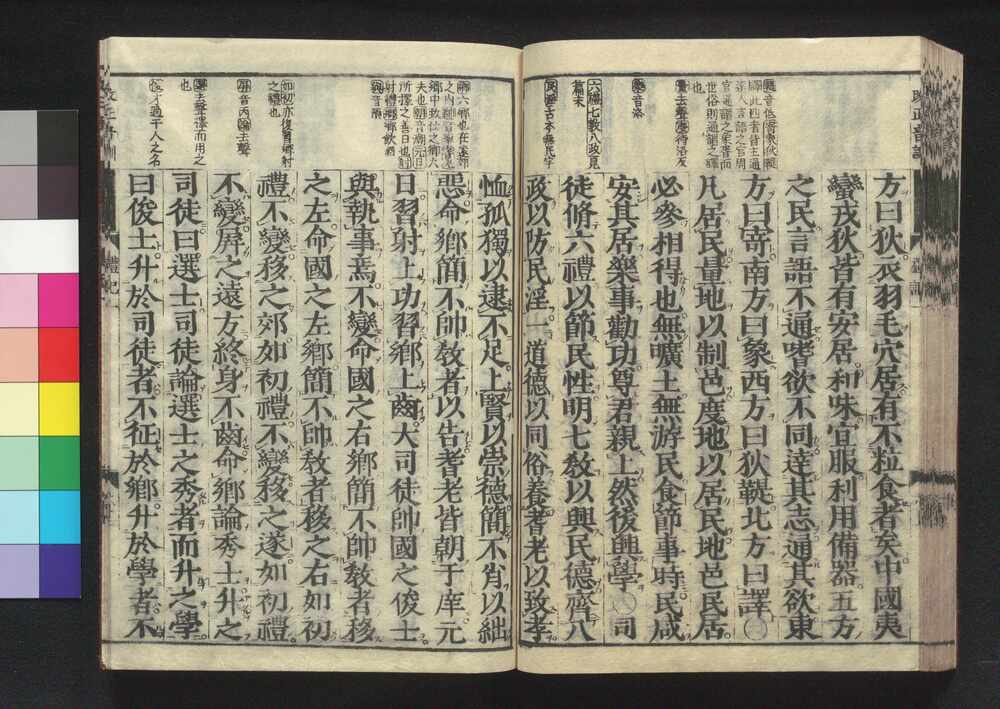 方曰狄衣羽毛穴居有不粒食者矣中國夷
蠻戎狄皆有安居和味宜服利用備器五方
之民言語不通嗜欲不同達其志通其欲東
方曰寄南方曰象西方曰狄鞮北方曰譯
凡居民量地以制邑度地以居民地邑民居
必參相得也無曠土無游民食節事時民咸
安其居樂事勸功尊君親上然後興學 司
徒脩六禮以節民性明七敎以興民德齊八
政以防民淫一道德以同俗養耆老以致孝
恤孤獨以逮不足上賢以崇德簡不肖以絀
惡命鄉簡不帥敎者以告耆老皆朝于庠元
日習射上功習鄉上齒大司徒帥國之俊士
與執事焉不變命國之右鄉簡不帥敎者移
之左命國之左鄉簡不帥敎者移之右如初
禮不變移之郊如初禮不變移之遂如初禮
不變屏之遠方終身不齒命鄉論秀士升之
司徒曰選士司徒論選士之秀者而升之學
曰俊士升於司徒者不征於鄉升於學者不
樂音洛
六禮七敎八政見
篇末
與音預
如初亦復習鄉射
之禮也
屏音丙論去聲
選去聲擇而用之
也
俊才過千人之名
禮記